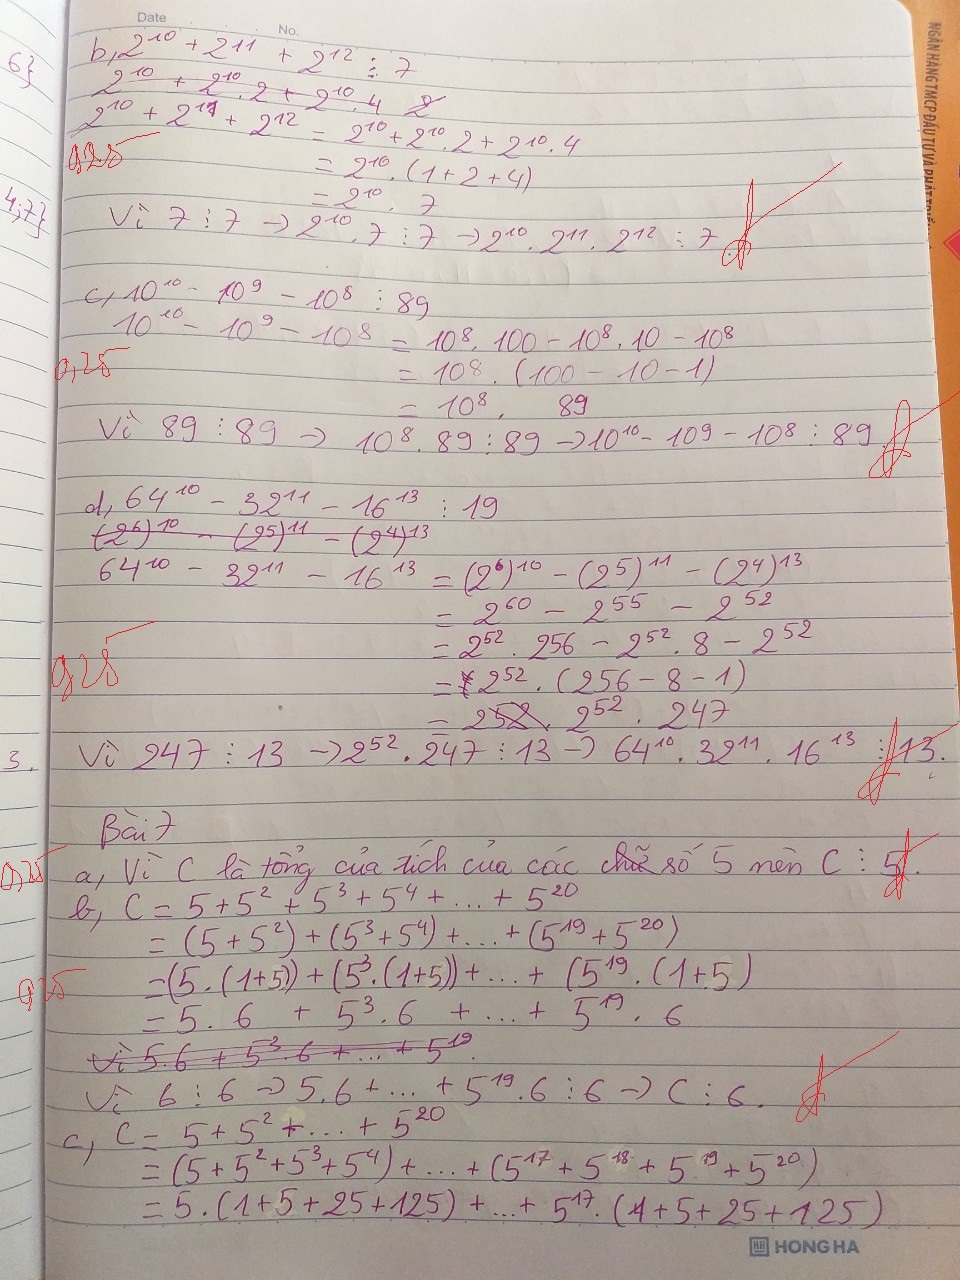 Date
No.
6}
4;7}
3.
NGÂN HÀNG TMCP ĐẦU TƯ VÀ PHÁT TRIỂN
b, 2¹⁰ + 2¹¹ + 2¹² ⋮ 7
2¹⁰ + 2¹⁰.2 + 2¹⁰.4
2¹⁰ + 2¹¹ + 2¹² = 2¹⁰ + 2¹⁰.2 + 2¹⁰.4
0,25
= 2¹⁰.(1+2+4)
= 2¹⁰. 7
Vì 7 ⋮ 7 → 2¹⁰.7 ⋮ 7 → 2¹⁰.2¹¹.2¹² ⋮ 7
c, 10¹⁰ - 10⁹ - 10⁸ ⋮ 89
10¹⁰ - 10⁹ - 10⁸ = 10⁸.100 - 10⁸.10 - 10⁸
0,25
= 10⁸.(100 - 10 - 1)
= 10⁸. 89
Vì 89 ⋮ 89 → 10⁸.89 ⋮ 89 → 10¹⁰ - 10⁹ - 10⁸ ⋮ 89
d, 64¹⁰ - 32¹¹ - 16¹³ ⋮ 19
(2⁶)¹⁰ - (2⁵)¹¹ - (2⁴)¹³
64¹⁰ - 32¹¹ - 16¹³ = (2⁶)¹⁰ - (2⁵)¹¹ - (2⁴)¹³
= 2⁶⁰ - 2⁵⁵ - 2⁵²
= 2⁵².256 - 2⁵².8 - 2⁵²
0,25
= 2⁵².(256 - 8 - 1)
= 252. 2⁵². 247
Vì 247 ⋮ 13 → 2⁵².247 ⋮ 13 → 64¹⁰.32¹¹.16¹³ ⋮ 13.
Bài 7
0,25
a, Vì C là tổng của tích của các chữ số 5 nên C ⋮ 5.
b, C = 5 + 5² + 5³ + 5⁴ + ... + 5²⁰
= (5 + 5²) + (5³ + 5⁴) + ... + (5¹⁹ + 5²⁰)
0,25
= (5.(1+5)) + (5³.(1+5)) + ... + (5¹⁹.(1+5)
= 5.6 + 5³.6 + ... + 5¹⁹.6
Vì 5.6 + 5³.6 + ... + 5¹⁹.
Vì 6 ⋮ 6 → 5.6 + ... + 5¹⁹.6 ⋮ 6 → C ⋮ 6.
c, C = 5 + 5² + ... + 5²⁰
= (5 + 5² + 5³ + 5⁴) + ... + (5¹⁷ + 5¹⁸ + 5¹⁹ + 5²⁰)
= 5.(1+5+25+125) + ... + 5¹⁷.(1+5+25+125)
HONG HA